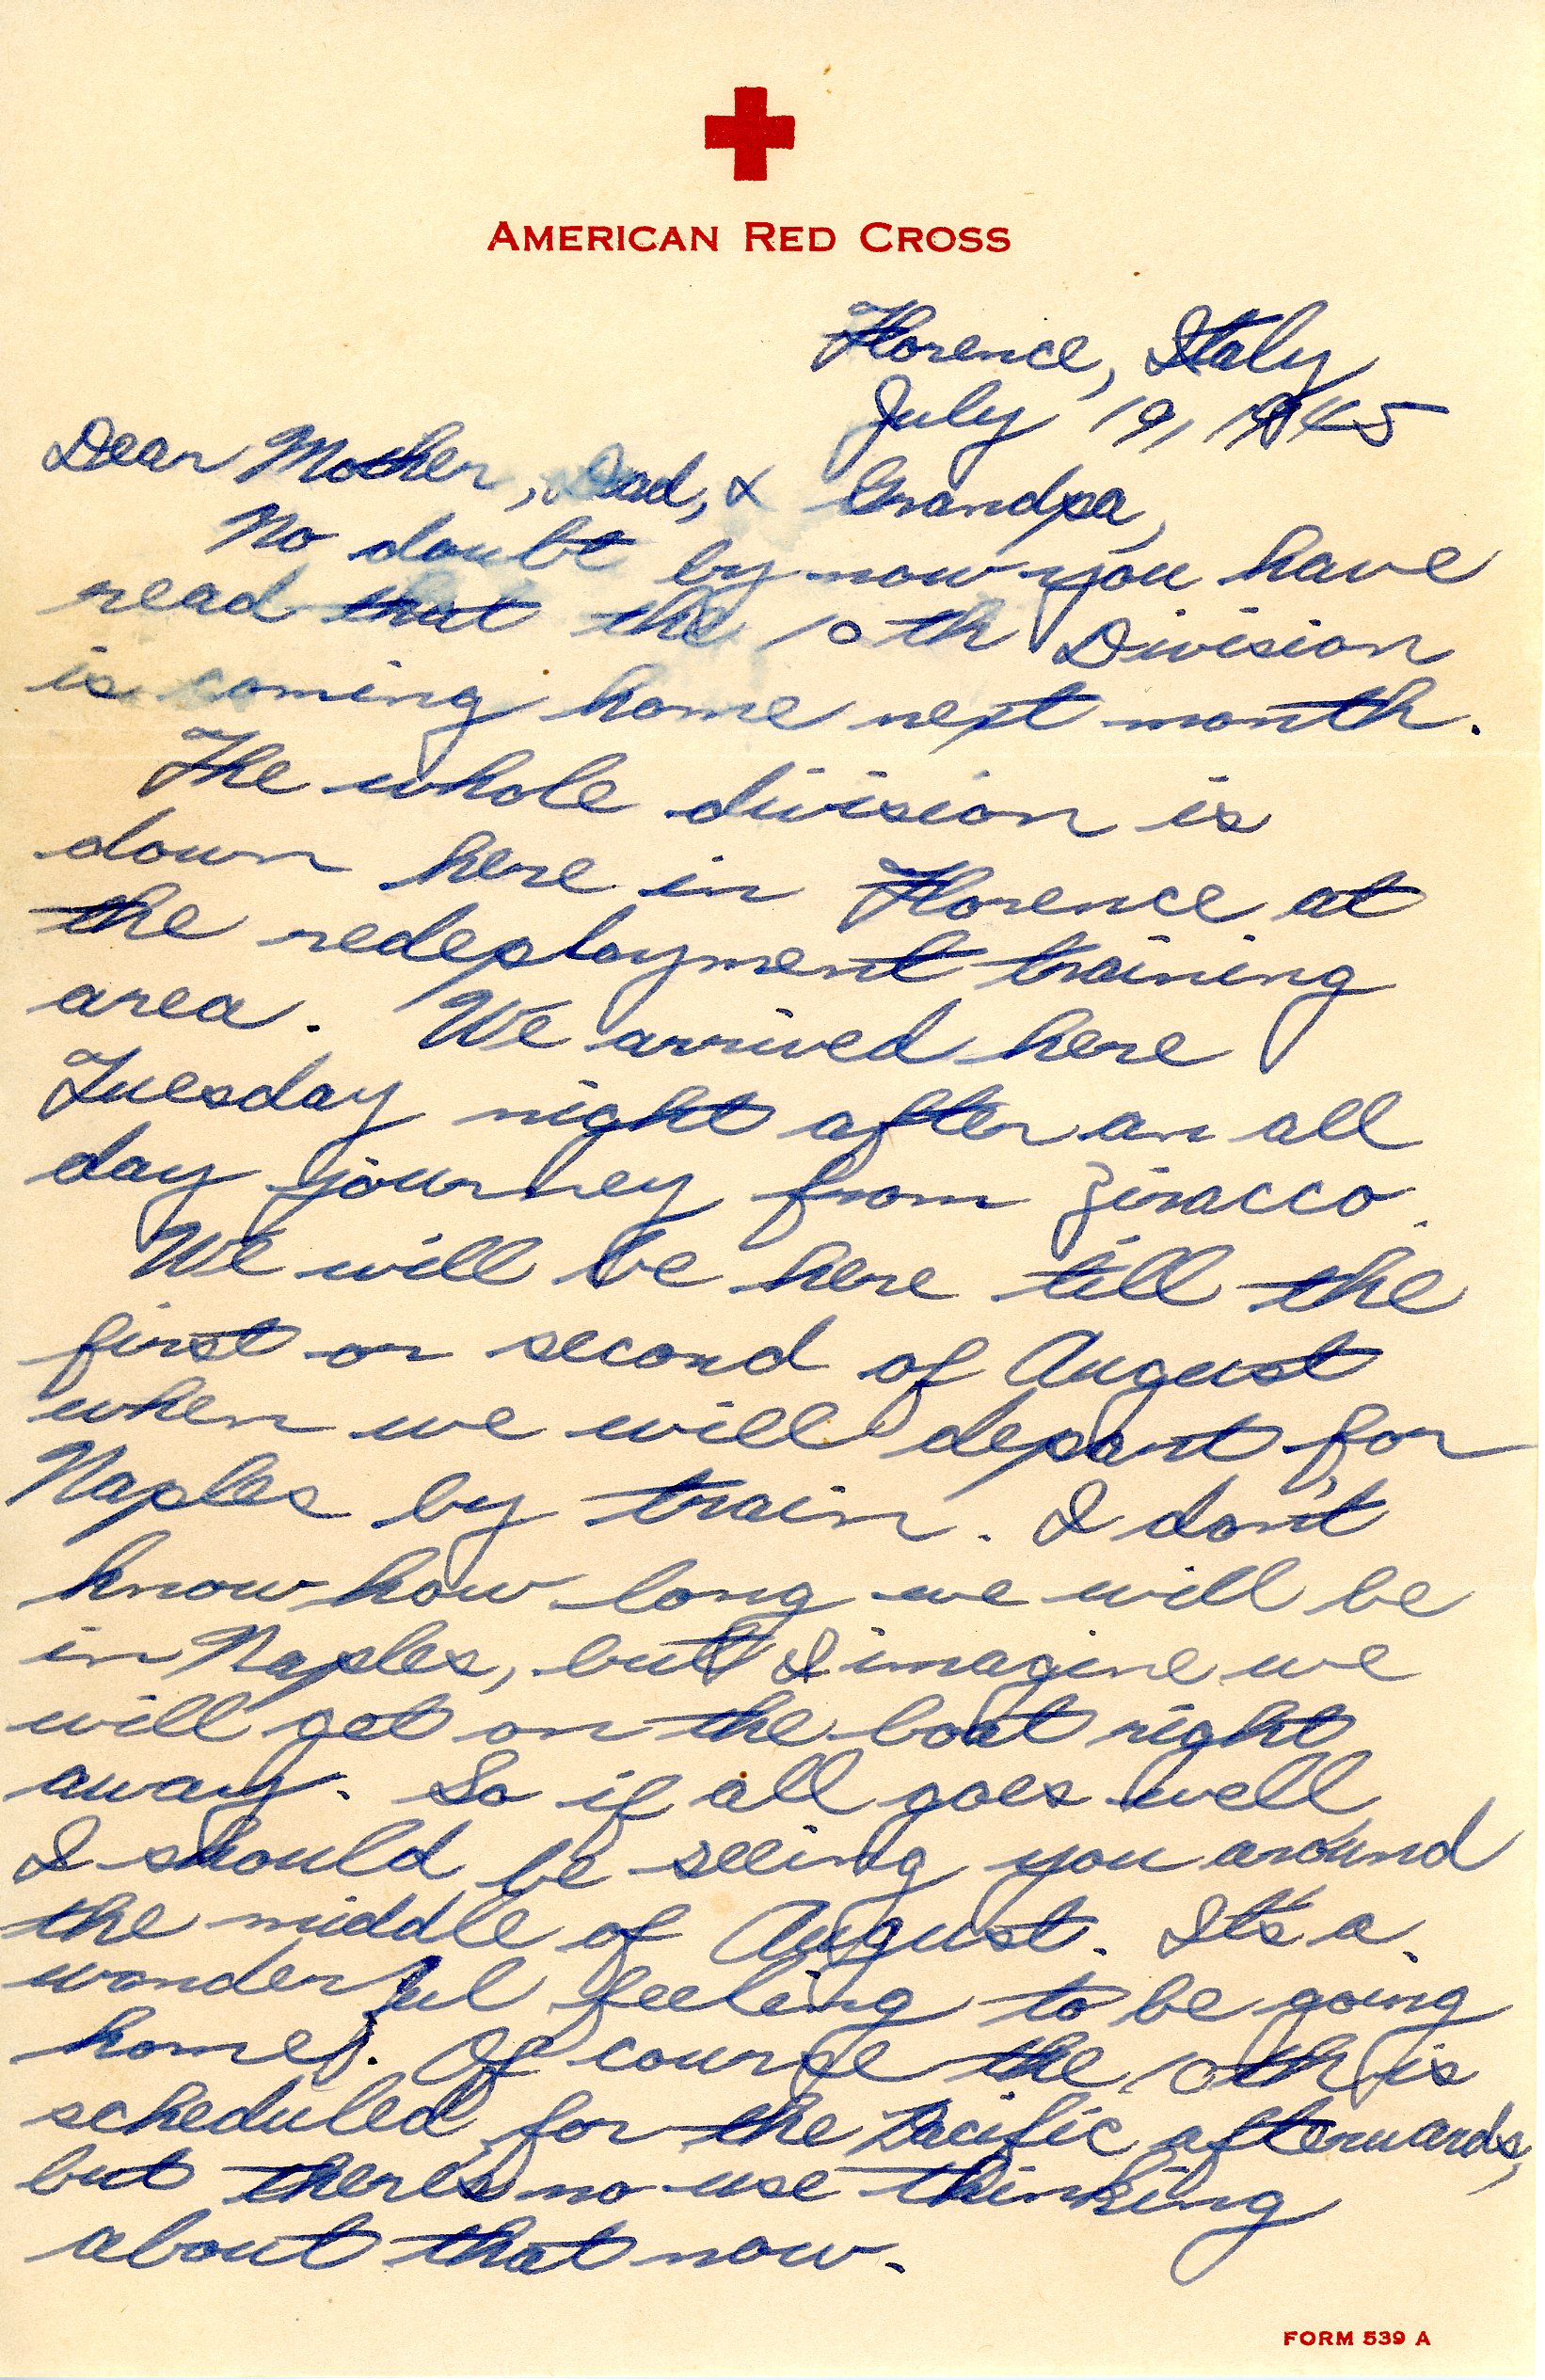 AMERICAN RED CROSS
Florence, Italy
July 19, 1945
Dear Mother, Dad, & Grandpa,
No doubt by now you have
read that the 10th Division
is coming home next month.
The whole division is
down here in Florence at
the redeployment training
area. We arrived here
Tuesday night after an all
day journey from Ziracco.
We will be here till the
first or second of August
when we will depart for
Naples by train. I don't
know how long we will be
in Naples, but I imagine we
will get on the boat right
away. So if all goes well
I should be seeing you around
the middle of August. It's a
wonderful feeling to be going
home. Of course the 10th is
scheduled for the Pacific afterwards,
but there's no use thinking
about that now.
FORM 539 A